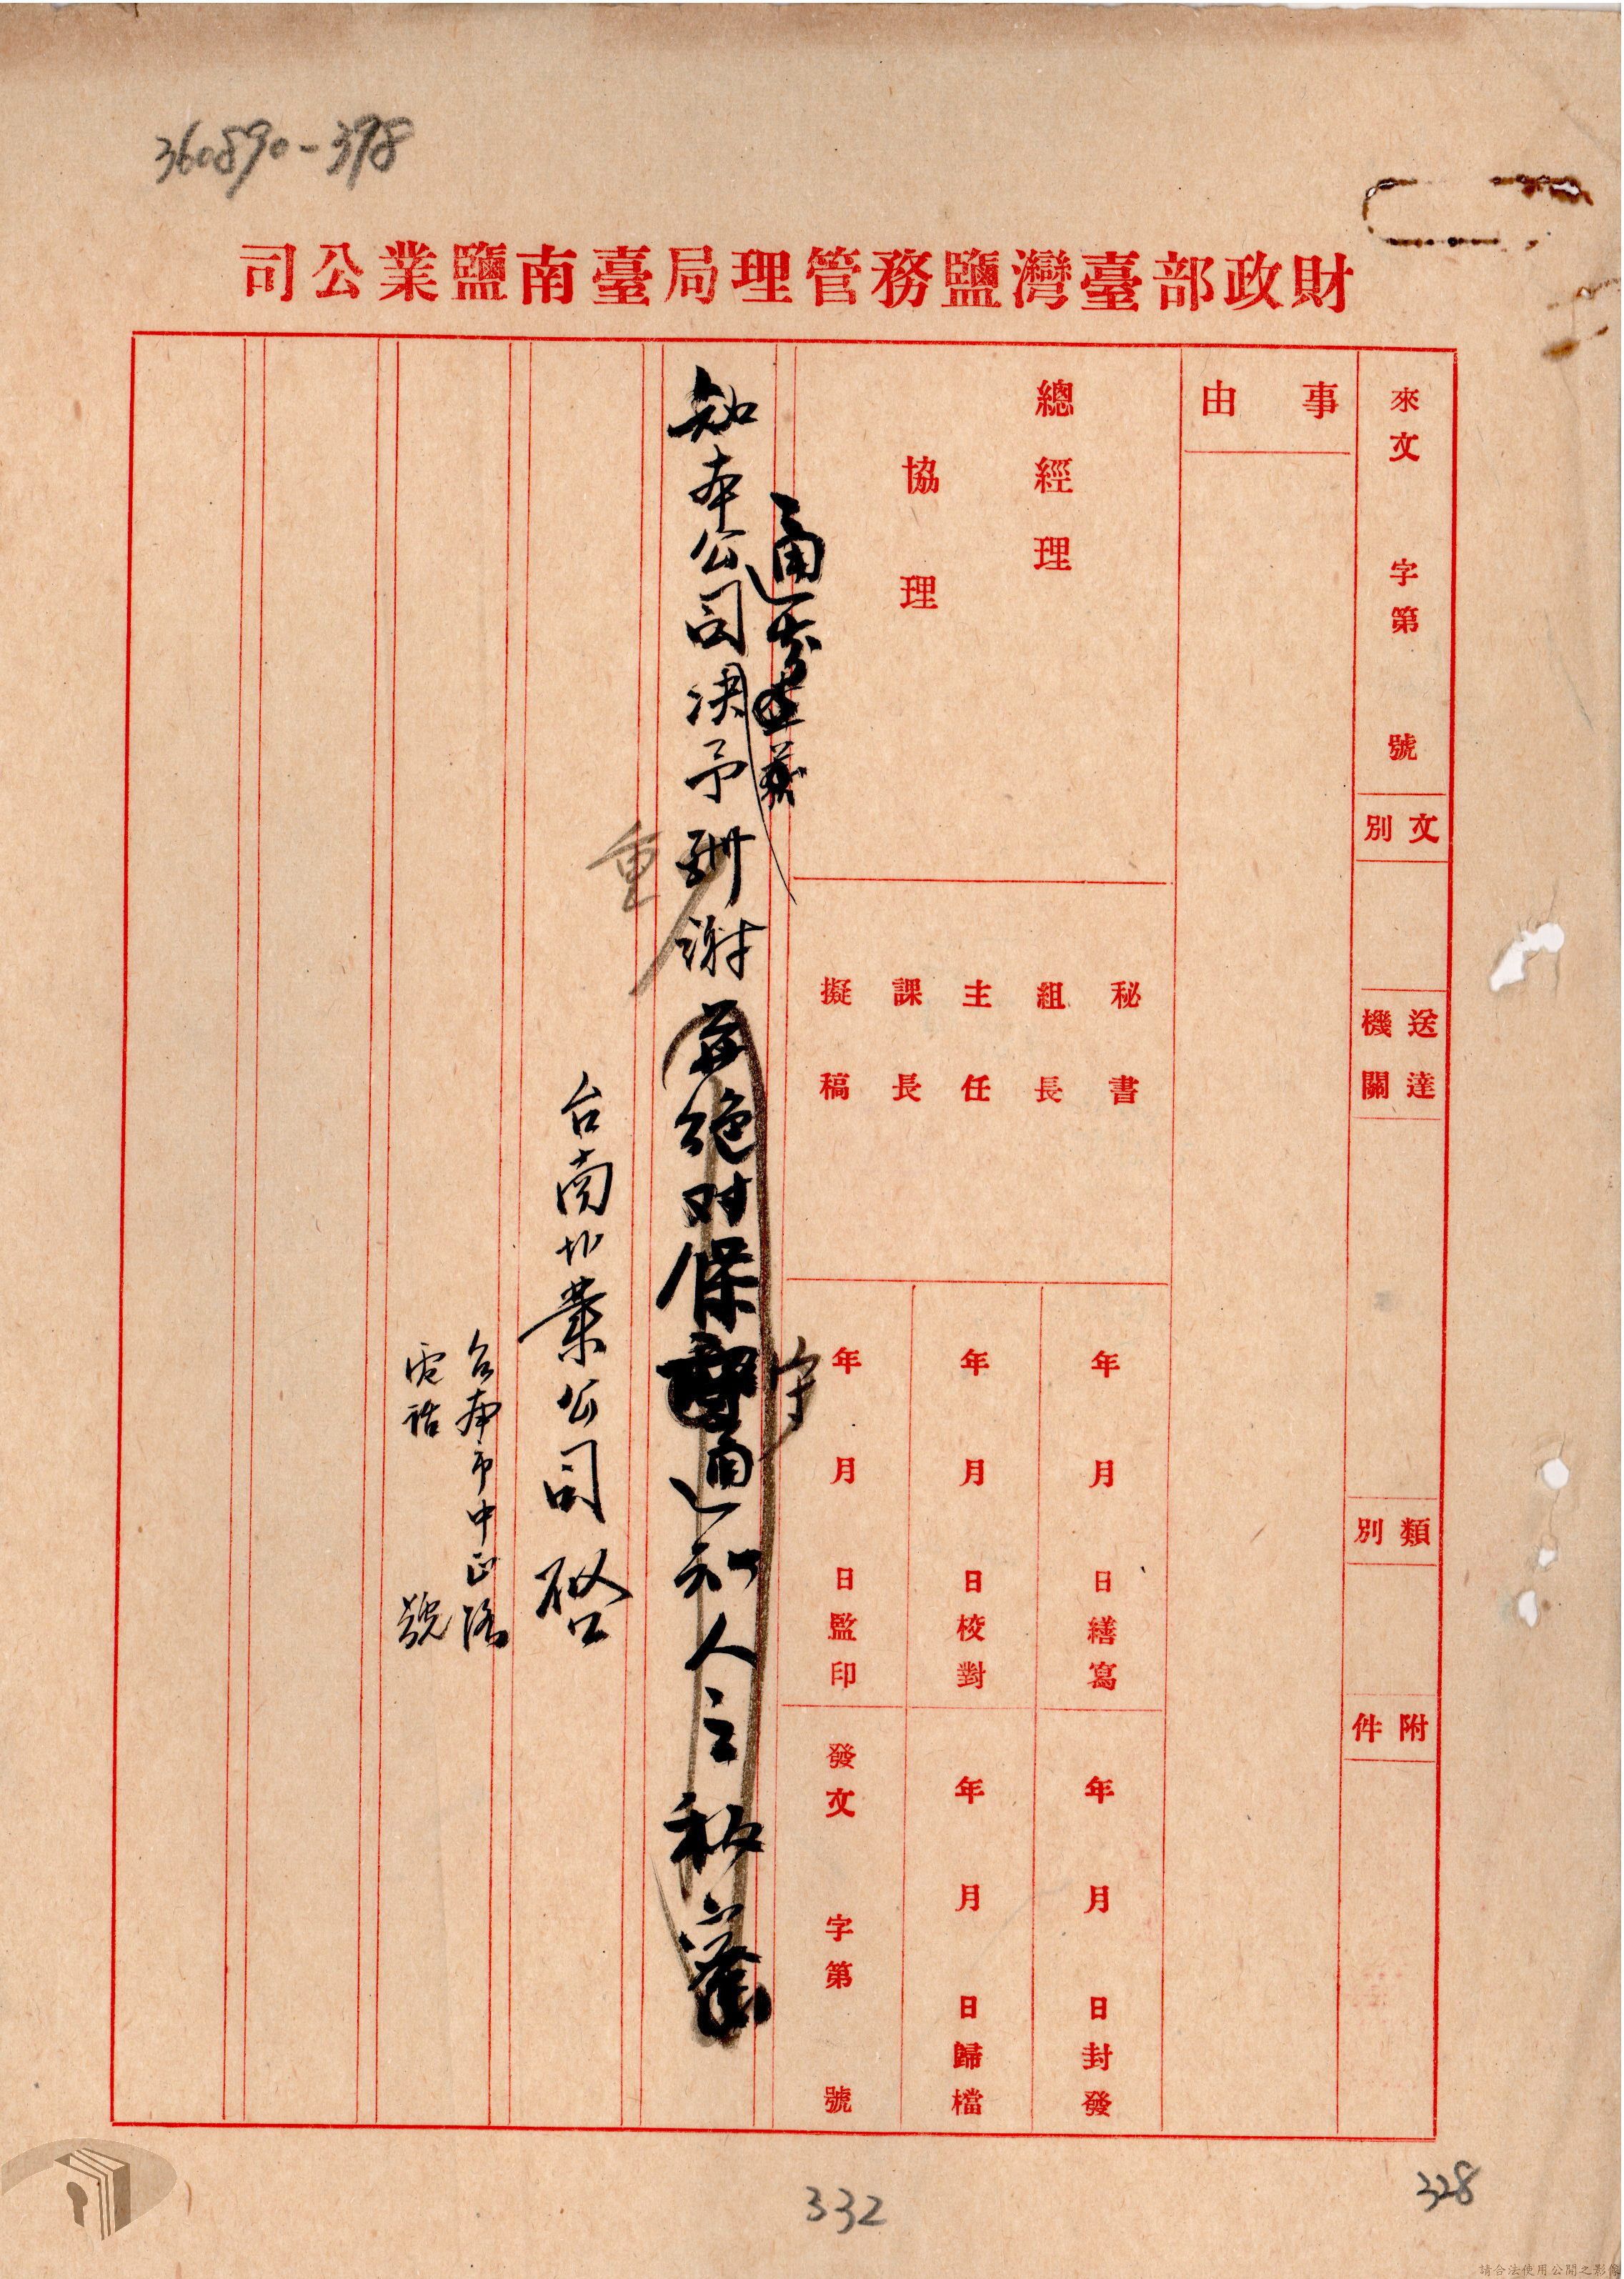 360890-398
財政部臺灣鹽務管理局臺南鹽業公司
來文 字第 號
文別
送達機關
類別
附件
事由
總經理
協理
秘書
組長
主任
課長
擬稿
年 月 日繕寫
年 月 日校對
年 月 日監印
年 月 日封發
年 月 日歸檔
發文 字第 號
通
知本公司決予酬謝並絕对保
守
通知人之秘密
重
台南卟業公司 啓
台南市中正路
電話 號
332
328
請合法使用公開之影像